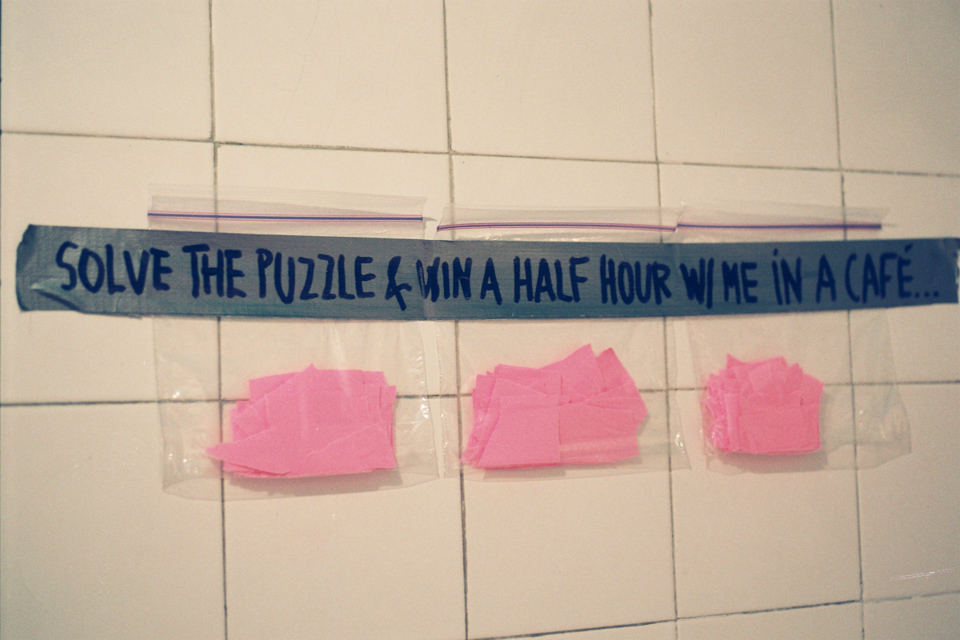 SOLVE THE PUZZLE & WIN A HALF HOUR W/ ME iN A CAFÉ...